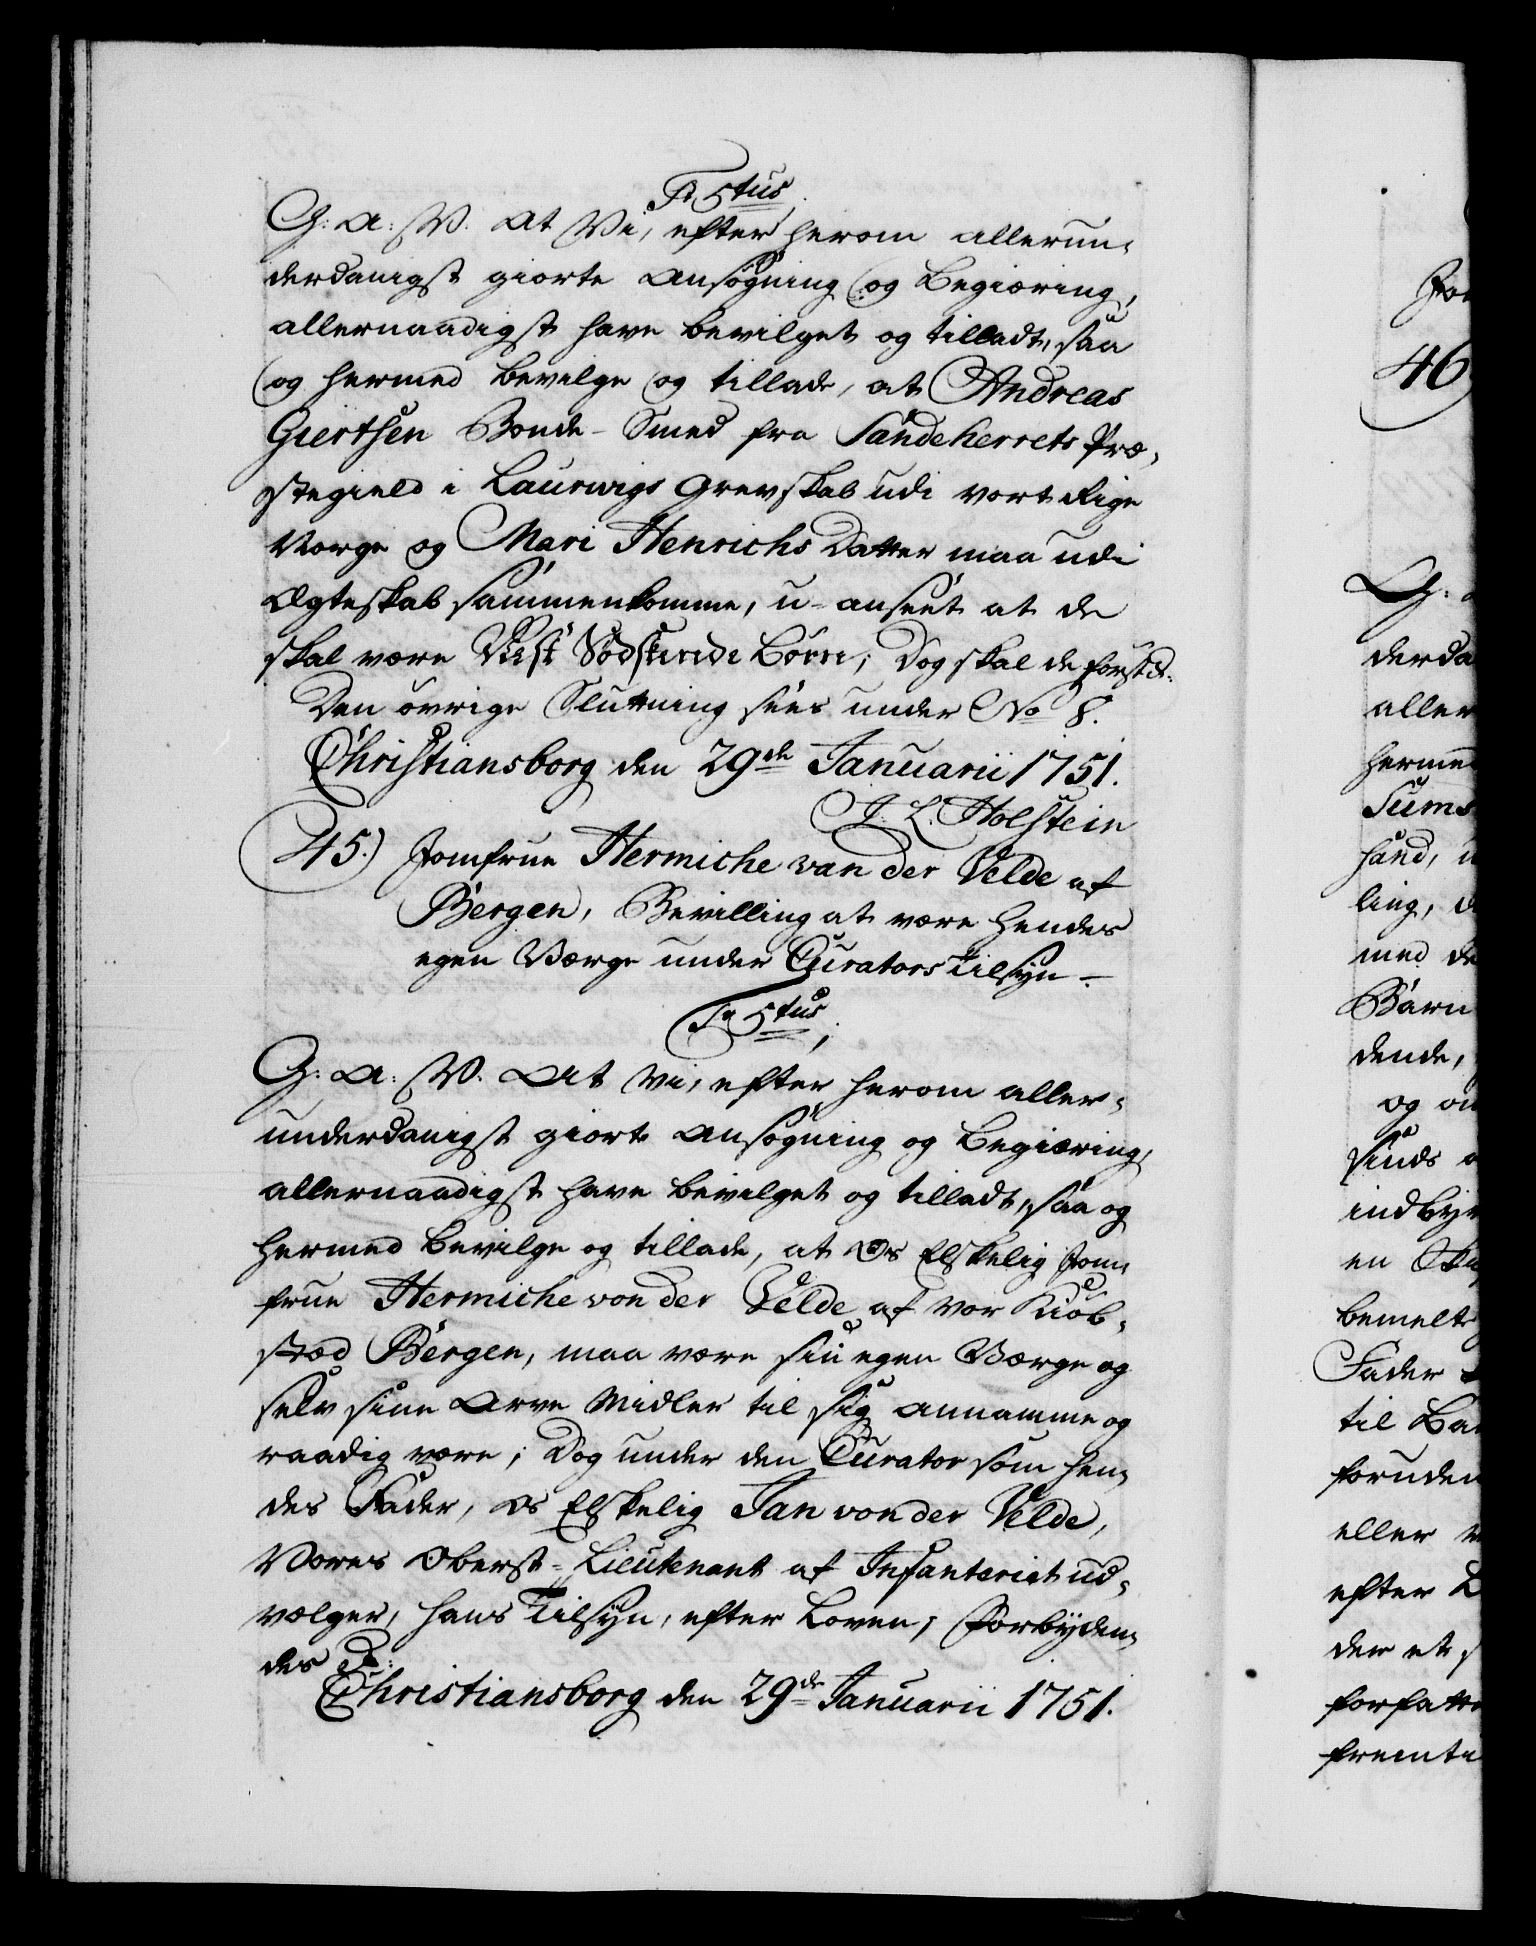 Fr 5tus
G: A: W. At Vi, efter herom allerun-
derdanigst giorte Ansøgning og Begiæring,
allernaadigst have bevilget og tilladt, saa
og hermed bevilge og tillade, at Andreas
Giertsen Bonde-Smed fra Sandeherrets Præ-
stegield i Laurwigs Grevskab udi vort Rige
Norge og Mari Henrichs Datter maa udi
Ægteskab sammenkomme, u-anseet at de
skal være Næst Sødskende Børn; Dog skal de forst &.
Den øvrige Slutning sees under No 8.
Christiansborg den 29de Januarii 1751.
J. L. Holstein
45.) Jomfrue Hermiche van der Velde af
Bergen, Bevilling at være hendes
egen Værge under Curators Tilsyn.
Fr 5tus,
G: A: W. At vi, efter herom aller-
underdanigst giorte Ansøgning og Begiæring,
allernaadigst have bevilget og tilladt, saa og
hermed bevilge og tillade, at Os Elskelig Jom-
frue Hermiche von der Velde af vor Kiøb-
stæd Bergen, maa være sin egen Værge og
selv sine Arve Midler til sig annamme og
raadig være; Dog under den Curator som hen-
des Fader, Os Elskelig Jan von der Velde,
Vores Oberst-Lieutenant af Infanteriet ud-
vælger, hans Tilsyn, efter Loven; Forbyden-
des &:
Christiansborg den 29de Januarii 1751.
46
G:
derda
aller
herme
Sums
haand, u
ling, d
med de
Børn
dende,
og on
sinds
indbyr
en
bemelte
Fader
til Bar
foruden
eller
efter L
der et
forfatte
fremti